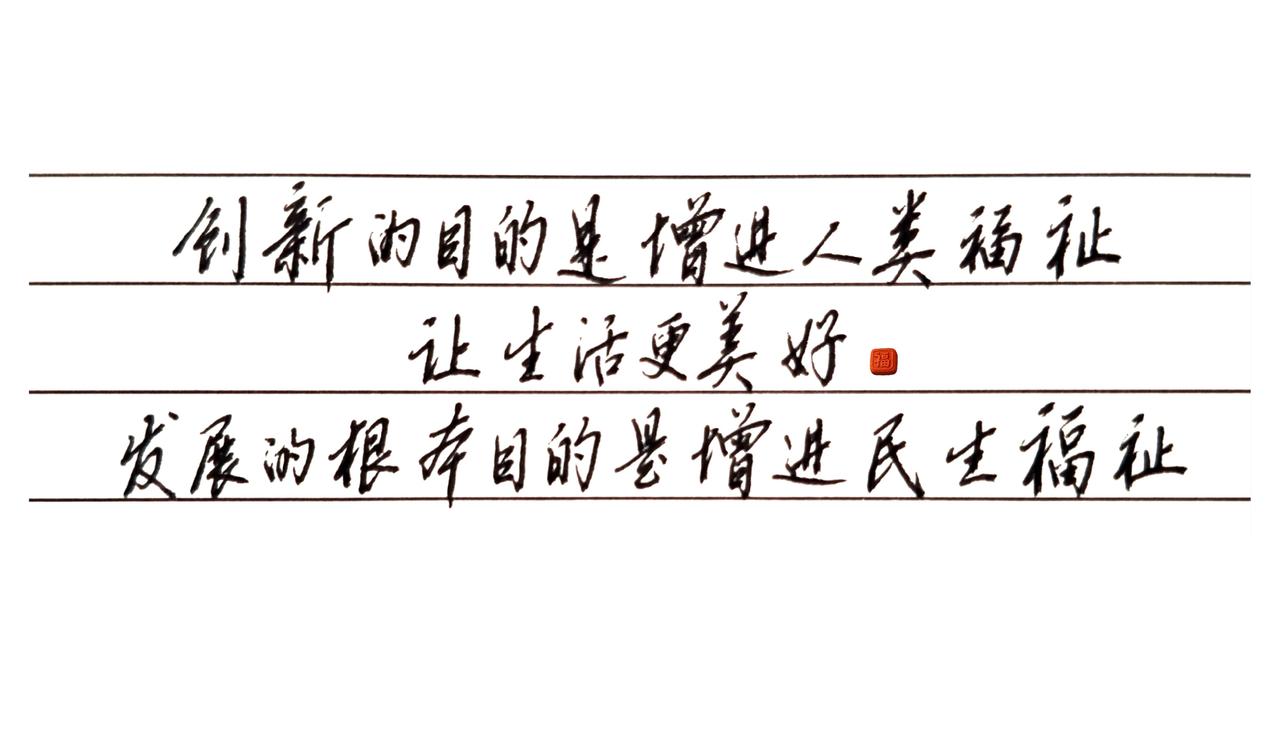 创新的目的是增进人类福祉
让生活更美好 福
发展的根本目的是增进民生福祉